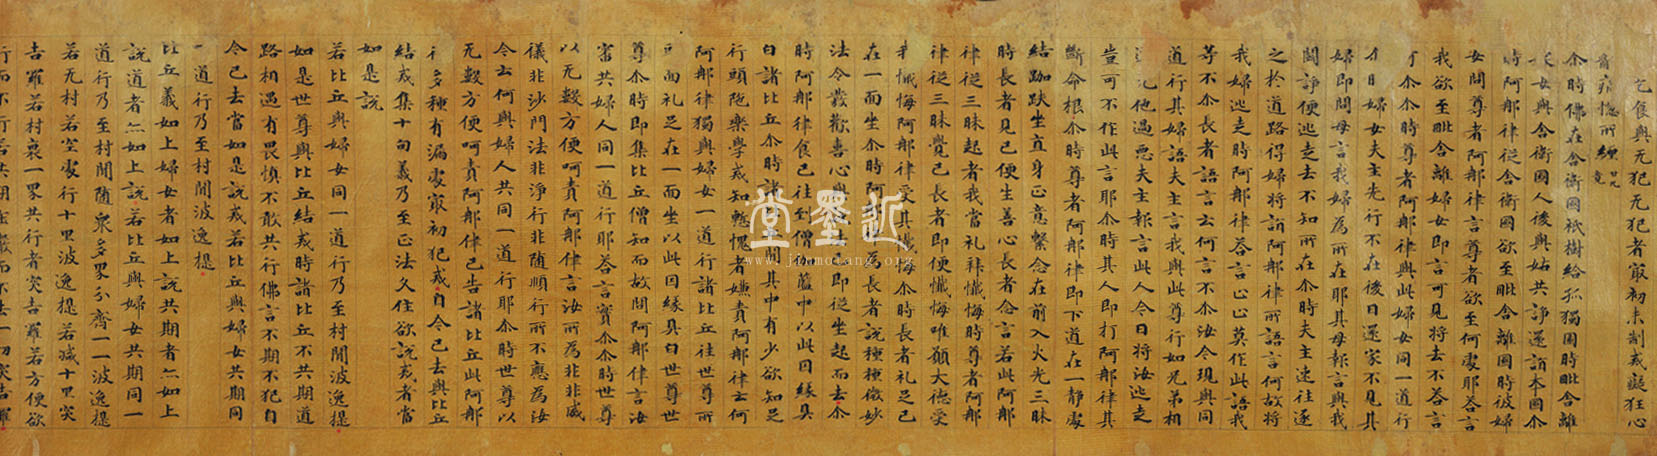 乞食與无犯无犯者最初未制戒癡狂心
亂痛惱所纏 竟
尒時佛在舍衛國祇樹給孤獨園時毗舍離
女與舍衛國人後與姑共諍還詣本國尒
時阿那律從舍衛國欲至毗舍離國時彼婦
女問尊者阿那律言尊者欲至何處耶荅言
我欲至毗舍離婦女即言可見將去不荅言
可尒尒時尊者阿那律與此婦女同一道行
尒日婦女夫主先行不在後日還家不見其
婦即問母言我婦為所在耶其母報言與我
鬪諍便逃走去不知所在尒時夫主速往逐
之於道路得婦將詣阿那律所語言何故將
我婦逃走時阿那律荅言止止莫作此語我
等不尒長者語言云何言不尒汝今現與同
道行其婦語夫主言我與此尊行如兄弟相
逐无他過惡夫主報言此人今日將汝逃走
豈可不作此言耶尒時其人即打阿那律其
斷命根尒時尊者阿那律即下道在一靜處
結跏趺坐直身正意繫念在前入火光三昧
時長者見已便生善心長者念言若此阿那
律從三昧起者我當礼拜懺悔時尊者阿那
律從三昧覺已長者即便懺悔唯願大德受
我懺悔阿那律受其懺悔尒時長者礼足已
在一面坐尒時阿那律為長者說種種微妙
法令發歡喜心與說法已即從坐起而去尒
時阿那律食已往到僧伽藍中以此因緣具
白諸比丘尒時諸比丘聞其中有少欲知足
行頭陁樂學戒知慙愧者嫌責阿那律云何
阿那律獨與婦女一道行諸比丘往世尊所
頭面礼足在一面坐以此因緣具白世尊世
尊尒時即集比丘僧知而故問阿那律言汝
審共婦人同一道行耶荅言實尒尒時世尊
以无數方便呵責阿那律言汝所為非非威
儀非沙門法非淨行非隨順行所不應為汝
今云何與婦人共同一道行耶尒時世尊以
无數方便呵責阿那律已告諸比丘此阿那
律多種有漏處最初犯戒自今已去與比丘
結戒集十句義乃至正法久住欲說戒者當
如是說
若比丘與婦女同一道行乃至村間波逸提
如是世尊與比丘結戒時諸比丘不共期道
路相遇有畏慎不敢共行佛言不期不犯自
今已去當如是說戒若比丘與婦女共期同
一道行乃至村間波逸提
比丘義如上婦女者如上說共期者亦如上
說道者亦如上說若比丘與婦女共期同一
道行乃至村間隨衆多界分齊一一波逸提
若无村若空處行十里波逸提若減十里突
吉羅若村裏一界共行者突吉羅若方便欲
行而不行若共期莊嚴而不去一切突吉羅
逝墨堂
www.jinmotang.org